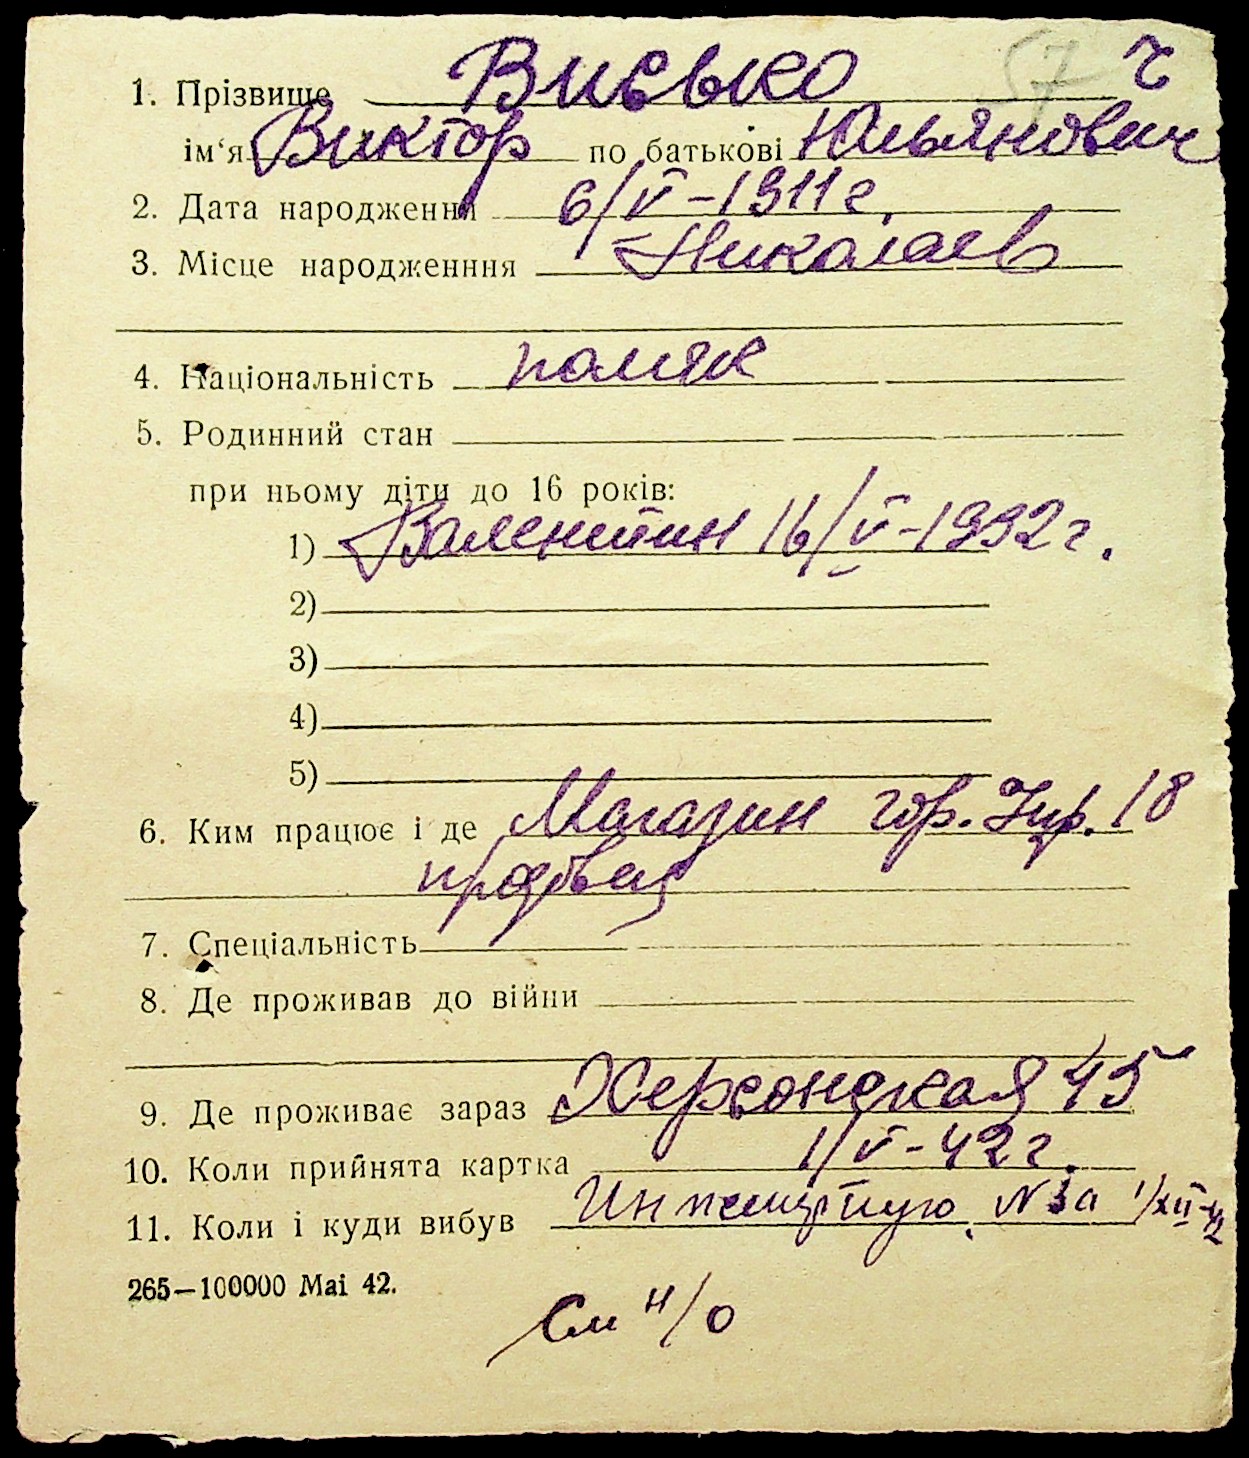 57 ч
1. Прізвище Висько
ім‘я Виктор по батькові Юльянович
2. Дата народження 6/V-1911 г.
3. Місце народженння Николаев
4. Національність поляк
5. Родинний стан
при ньому діти до 16 років:
1) Валентин 16/V-1932 г.
2)
3)
4)
5)
6. Ким працює і де Магазин гор. Упр. 18
продвец
7. Спеціальність
8. Де проживав до війни
9. Де проживає зараз Херсонская 45
10. Коли прийнята картка 1/V-42 г.
11. Коли і куди вибув N 3а 1/XII-42
265—100000 Mai 42.
См н/о